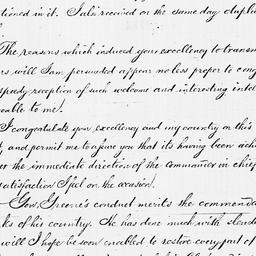 tioned in it. I also received on the same day dupli
The reasons which induced your excellency to transm
rs, will I am persuaded appear no less proper to cong
speedy reception of such welcome and interesting intel
eable to me!
I congratulate your excellency and my country on this
t, and permit me to assure you that its having been achi
er the immediate direction of the commander in chief
satisfaction I feel on the occasion.
Gov. Greene's conduct merits the commenda
ks of his country. He has done much with slende
will I hope be soon enabled to receive every part of